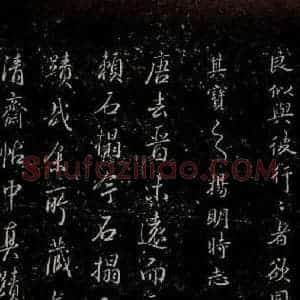 良似與後行〻者欲同
其寶之 揚明時志
唐去晉未遠而
賴石搨字石搨
蹟或偽所藏
清齋帖中真蹟
Shufaziliao.com